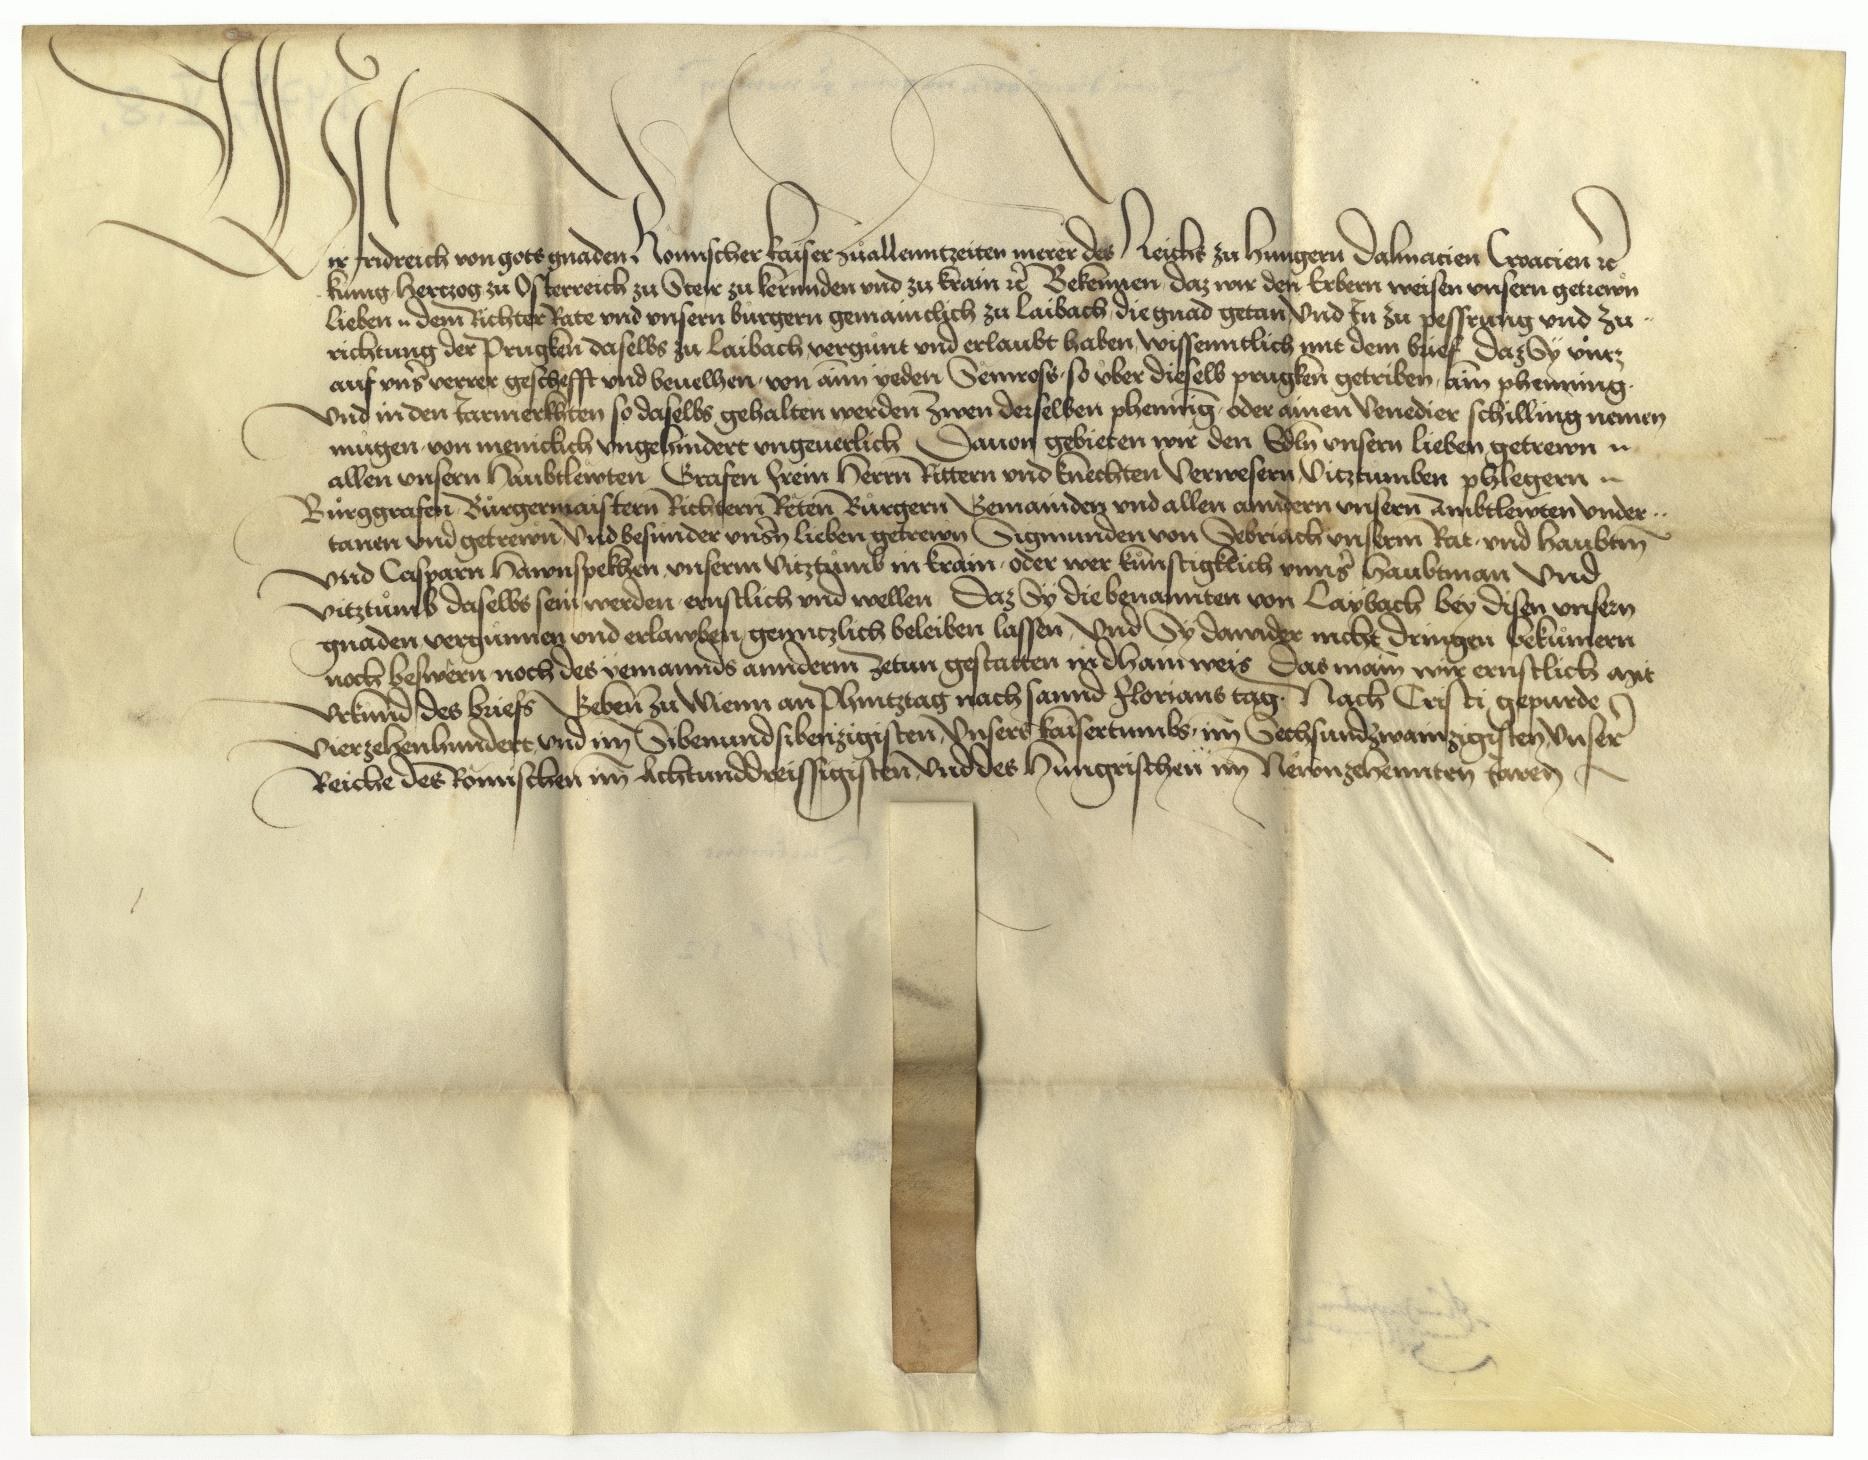 Wir Fridreich von gots gnaden Romischer Kaiser zuallenntzeiten merer des Reichs zu Hungern Dalmacien Croacien ꝛc̃
kunig Hertzog zu Österreich zu Steir zu kernnden vnd zu krain ꝛc̃ Bekennen daz wir den Erbern weisen vnsern getrewn
lieben .. dem Richter Rate vnd vnsern burgern gemainclich zu Laibach die gnad getan Vnd In zu pessrung vnd zu ..
richtung der Prugken daselbs zu Laibach vergunt vnd erlaubt haben wissenntlich mit dem brief Daz Sy vntz
auf vnser verrer geschefft vnd beuelhen von aim yeden Semross so vber dieselb prugken getriben aim phenning
Vnd in den Jarmerkhten so daselbs gehalten werden Zwen derselben phennig oder ainen Venedier schilling nemen
mugen von meniclich vngehindert vngeuerlich Dauon gebieten wir den Edln vnsern lieben getrewn ..
allen vnsern Haubtlewten Grafen Frein Herrn Rittern vnd knechten Verwesern Vitztumben phlegern ..
Burggrafen Burgermaistern Richtern Reten Burgern Gemainden vnd allen anndern vnsern Ambtlewten vnder ..
tanen vnd getrewn Vnd besunder vnsern lieben getrewn Sigmunden von Sebriach vnserm Rat vnd Haubtm̃
Vnd Casparn Hawnspekhen vnserm Vitztumb in krain oder wer kunftigklich vnnser Haubtman Vnd
Vitztumb daselbs sein werden ernstlich vnd wellen Daz Sy die benannten von Laybach bey disen vnsern
gnaden vergunnen vnd erlawben genntzlich beleiben lassen Vnd Sy dawider nicht dringen bekumern
noch beswern noch des yemannds annderm zetun gestatten in dhain weis Das main wir ernstlich Mit
Vrkund des briefs Geben zu Wienn an Phintztag nach sannd Florians tag Nach Cristi gepurde
Vierzehenhundert vnd im Sibenundsibenzigisten Vnsers kaisertumbs im Sechsundzwainzigisten Vnser
Reiche des Romischen im Achtunddreissigisten Vnd des Hungrischen im Newnzehennten Jaren